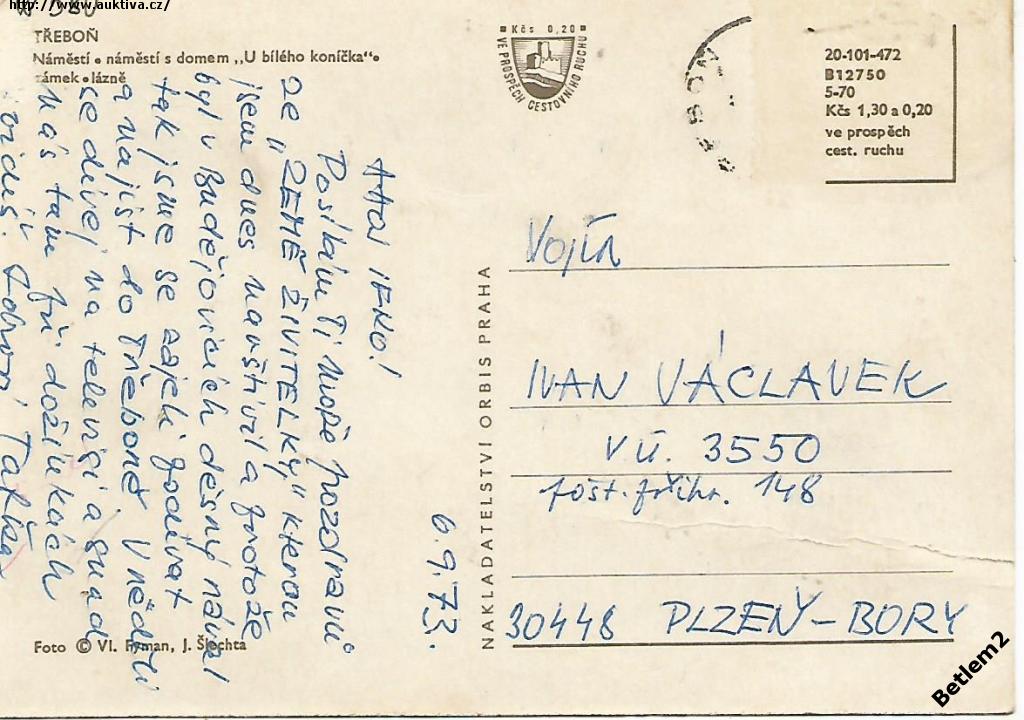 http://www.auktiva.cz/
TŘEBOŇ
Náměstí • náměstí s domem „U bílého koníčka“ •
zámek • lázně
Kčs 0,20
VE PROSPĚCH CESTOVNÍHO RUCHU
20-101-472
B12750
5-70
Kčs 1,30 a 0,20
ve prospěch
cest. ruchu
6.9.73.
AHOJ IFKO!
Posílám Ti moře pozdravů
ze „ZEMĚ ŽIVITELKY“ kterou
jsem dnes navštívil a protože
byl v Budějovicích děsný nával
tak jsme se zajeli podívat
a najíst do Třeboně. V neděli
se dívej na televizi a snad
nás tam při dožínkách
uvidíš. Zdraví Taťka
NAKLADATELSTVÍ ORBIS PRAHA
Vojín
IVAN VÁCLAVEK
V.Ú. 3550
pošt. přihr. 148
30448 PLZEŇ-BORY
Foto © Vl. Fyman, J. Šlechta
Betlem2